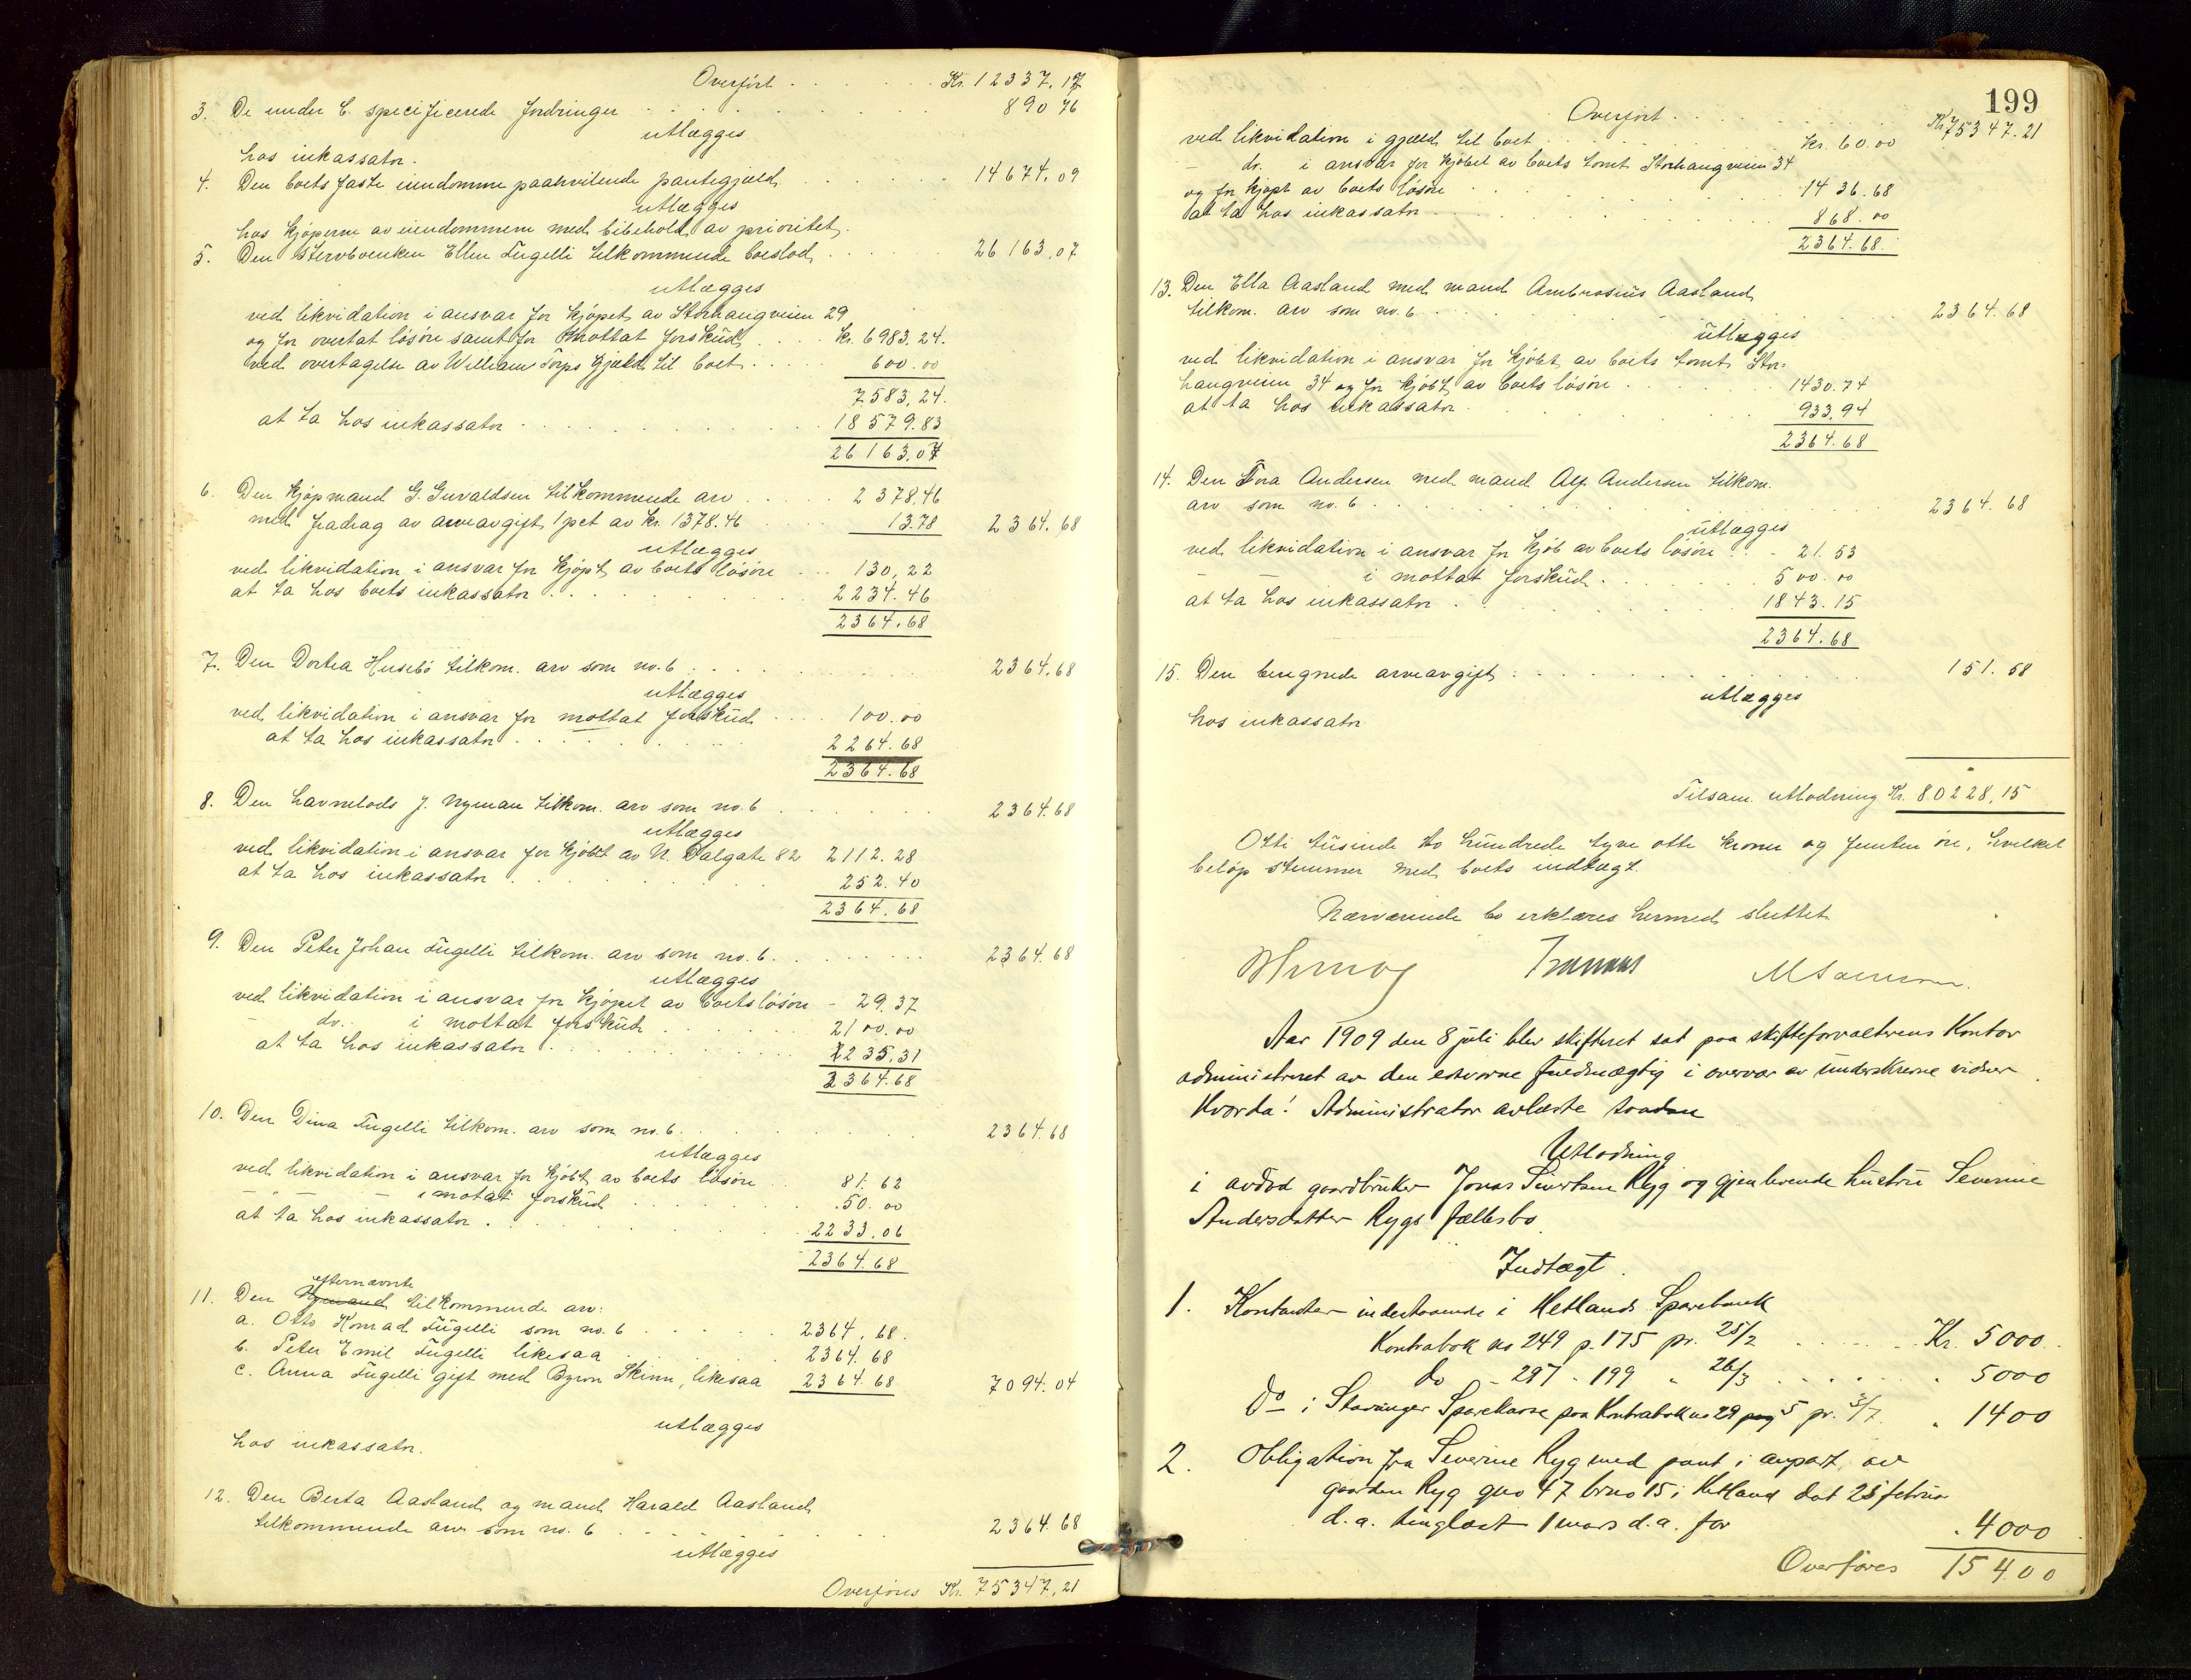 Overført . . . . . Kr. 12337,17
3. De under C. specificerede fordringer . . . . . 890 76
utlægges
hos inkassator.
4. Den boets faste eiendomme paahvilende pantegjæld . . . . . 14674,09
utlægges
hos kjøperne av eiendommene med bibehold av prioritet.
5. Den Stervboenken Ellen Fugelli tilkommende boeslod . . . . . 26163,07
utlægges
ved likvidation i ansvar for kjøpet av Storhaugveien 29
og for overtat løsøre samt for mottat forskud . . . Kr. 6983,24.
ved overtagelse av William Torps gjæld til boet . . . 600.00
7583,24.
at ta hos inkassator . . . . . 18579.83
26163.07
6. Den kjøpmand G. Guvaldsen tilkommende arv . . . . . 2378,46
med fradrag av arveavgift 1 pct av kr. 1378.46 . . . 13.78 2364,68
utlægges
ved likvidation i ansvar for kjøpt av boets løsøre . . . 130,22
at ta hos boets inkassator . . . . . 2234.46
2364.68
7. Den Dortea Husebø tilkom. arv som no. 6 . . . . . 2364,68
utlægges
ved likvidation i ansvar for mottat forskud . . . . 100.00
at ta hos inkassator . . . . . 2264.68
2364.68
8. Den havnelods J. Nyman tilkom. arv som no. 6 . . . . . 2364.68
utlægges
ved likvidation i ansvar for kjøbt av N. Dalgate 82 2112.28
at ta hos inkassator . . . . . 252.40
2364.68
9. Den Peter Johan Fugelli tilkom. arv som no. 6 . . . . . 2364.68
utlægges
ved likvidation i ansvar for kjøpet av boets løsøre - 29.37
- do. i mottat forskud . . . . . 2100.00
at ta hos inkassator . . . . . 235,31
2364.68
10. Den Dina Fugelli tilkom. arv som no. 6 . . . . . 2364.68
utlægges
ved likvidation i ansvar for kjøbt av boets løsøre . . 81.62
- " - - i motat forskud . . . . . 50.00
at ta hos inkassator . . . . . 2233,06
2364.68
efternævnte
11. Den tilkommende arv:
a. Otto Konrad Fugelli som no. 6 . . . . . 2364,68.
b. Peter Emil Fugelli likesaa . . . . . 2364.68
c. Anna Fugelli gift med Byron Skinn, likesaa 2364.68 7094.04
utlægges
hos inkassator.
12. Den Berta Aasland og mand Harald Aasland
tilkommende arv som no. 6 . . . . . 2364.68
utlægges
Overføres Kr. 75347,21
199
Overført . . . . . Kr. 75347.21
ved likvidation i gjæld til boet . . . . . Kr. 60.00
- do. i ansvar for kjøbet av boets tomt Storhaugveien 34
og for kjøpt av boets løsøre . . . . . 1436.68
at ta hos inkassator . . . . . 868.00
2364.68.
13. Den Ella Aasland med mand Ambrosius Aasland
tilkom. arv som no. 6 . . . . . 2364.68
utlægges
ved likvidation i ansvar for kjøbt av boets tomt Stor=
haugveien 34 og for kjøbt av boets løsøre . . . . . 1430.74
at ta hos inkassator . . . . . 933.94
2364.68
14. Den Tora Andersen med mand Alf Andersen tilkom.
arv som no. 6 . . . . . 2364.68
utlægges
ved likvidation i ansvar for kjøb av boets løsøre . . - 21.53
- - i mottat forskud . . . . . 500.00
at ta hos inkassator . . . . . 1843.15
2364.68
15. Den beregnede arveavgift : . . . . . 151.58
utlægges
hos inkassator
Tilsam. utlodning Kr. 80228,15
Otti tusinde to hundrede tyve otte kroner og femten øre, hvilket
beløp stemmer med boets indtægt.
Nærværende bo erklæres hermed sluttet.
Aar 1909 den 8 juli blev skifteret sat paa skifteforvalterens Kontor
administreret av den edsvorne fuldmægtig i overvær av underskrevne vidner
Hvorda! Administrator avlæste saadan
Utlodning
i avdød gaardbruker Jonas Sivertsen Ryg og gjenlevende hustru Severine
Andersdatter Rygs fællesbo.
Indtægt.
1. Kontanter indestaaende i Hetlands Sparebank
Kontrabok no 249 p. 175 pr. 25/2 . . . . . Kr. 5000.
do - 297 - 199 " 26/3 . . . . . " 5000
Do i Stavanger Sparekasse paa Kontrabok no 29 pag 5 pr. 3/7. " 1400
2. Obligation fra Severine Ryg med pant i anpart av
gaarden Ryg gno 47 brno 15 i Hetland dat 25 februar
d.a. tinglæst 1 mars d.a. for . 4000
Overføres 15400